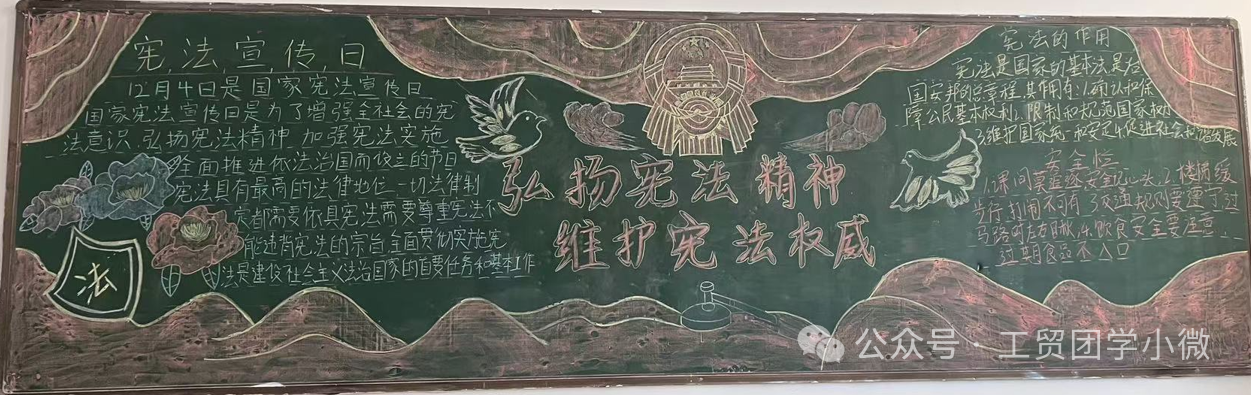 宪法宣传日
12月4日是国家宪法宣传日
国家宪法宣传日是为了增强全社会的宪
法意识.弘扬宪法精神 加强宪法实施
全面推进依法治国而设立的节日
宪法具有最高的法律地位一切法律制
都需要依具宪法需要尊重宪法不
能违背宪法的宗旨全面贯彻实施宪
法是建设社会主义法治国家的首要任务和基本工作
法
弘扬宪法精神
维护宪法权威
宪法的作用
宪法是国家的基本法是治
国安邦的总章程.其作用有:1.确认权保
障公民基本权利2.限制和规范国家权
3.维护国家 和安定4.促进社会和谐发展
安全
1.课间莫追逐安全记心头.2.楼梯缓
步行.打闹不可有.3.交通规则要遵守.过
马路时左右瞅.4.饮食安全要注意.
过期食品不入口
公众号·工贸团学小微